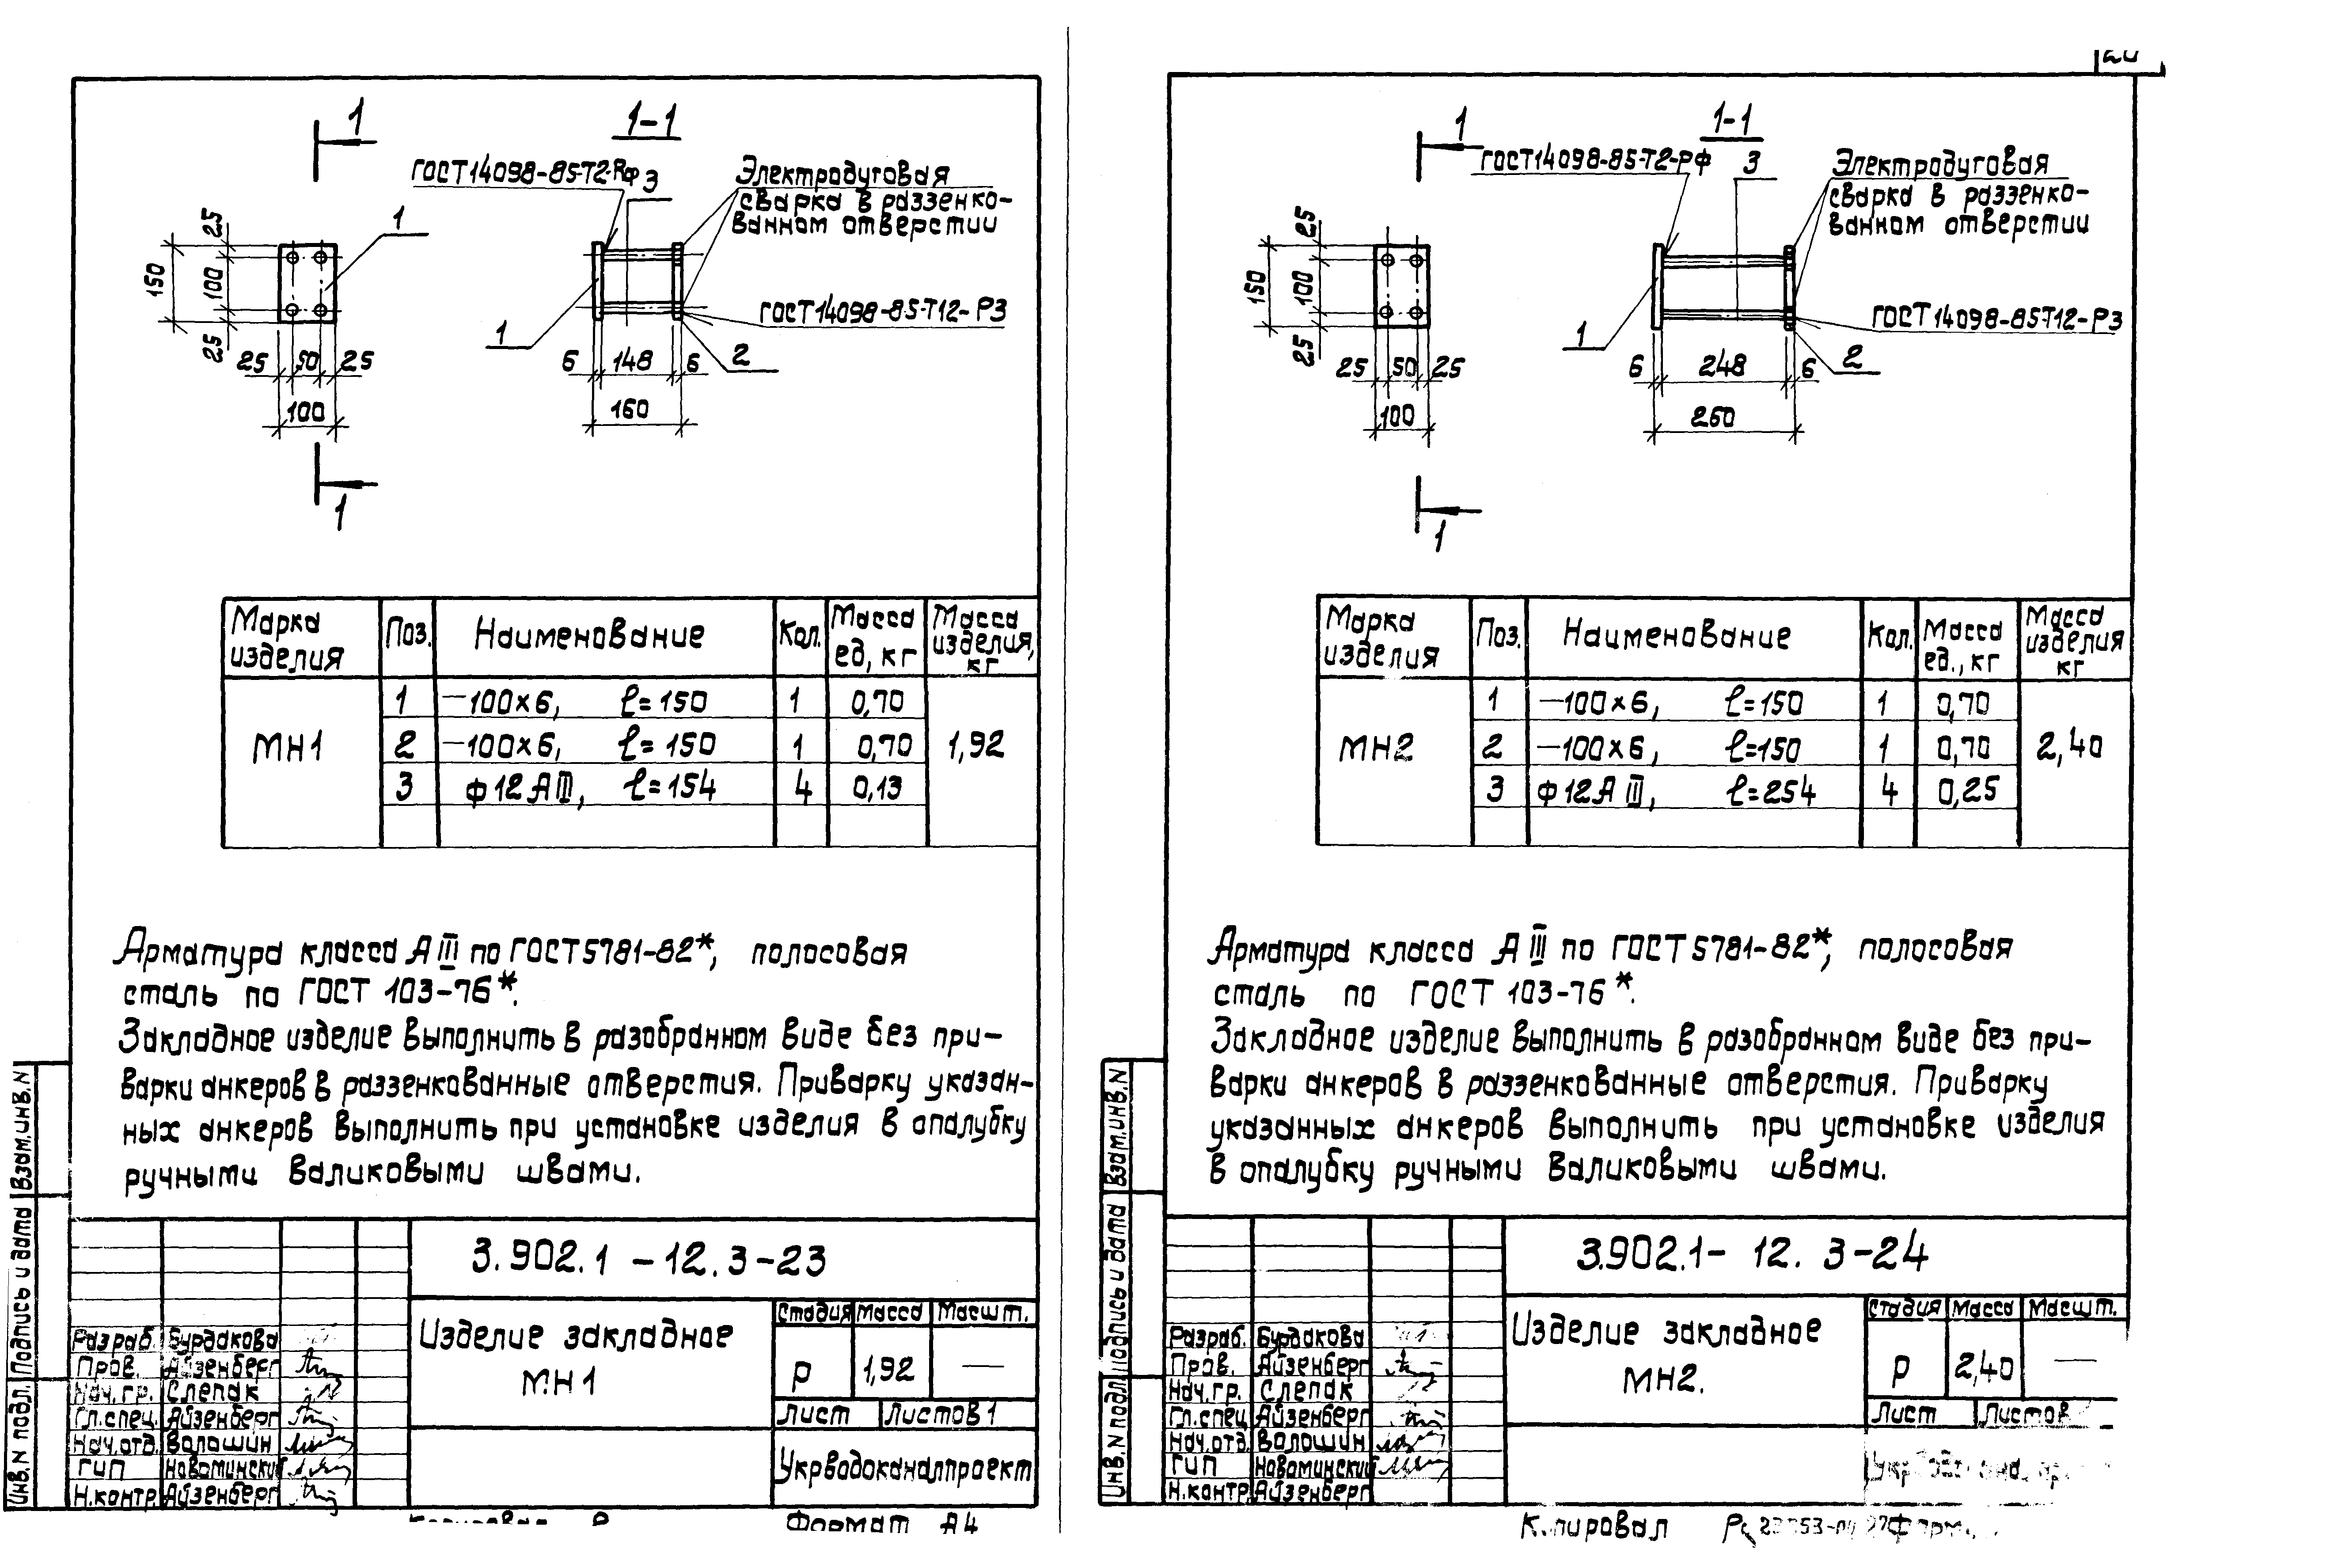 1
1-1
ГОСТ14098-85-Т2-Рф
3
Электродуговая
сварка в раззенко-
ванном отверстии
1
25
100
150
25
25 50 25
100
1
ГОСТ14098-85-Т12-РЗ
2
6 148 6
160
1
Марка изделия
Поз.
Наименование
Кол.
Масса ед, кг
Масса изделия, кг
МН1
1 —100×6, ℓ=150 1 0,70
2 —100×6, ℓ=150 1 0,70 1,92
3 ф12АIII, ℓ=154 4 0,13
Арматура класса АIII по ГОСТ5781-82*, полосовая
сталь по ГОСТ 103-76*.
Закладное изделие выполнить в разобранном виде без при-
варки анкеров в раззенкованные отверстия. Приварку указан-
ных анкеров выполнить при установке изделия в опалубку
ручными валиковыми швами.
Инв.N подл. Подпись и дата Взам.инв.N
3.902.1 - 12.3-23
Изделие закладное
МН1
Стадия Масса Масшт.
р 1,92 —
Лист Листов 1
Укрводоканалпроект
Разраб. Бурдакова
Пров. Айзенберг
Нач.гр. Слепак
Гл.спец. Айзенберг
Нач.отд. Волошин
ГИП Новоминский
Н.контр. Айзенберг
Формат А4
1
1-1
ГОСТ14098-85-Т2-Рф
3
Электродуговая
сварка в раззенко-
ванном отверстии
25
100
150
25
25 50 25
100
1
ГОСТ14098-85-Т12-РЗ
2
6 248 6
260
1
Марка изделия
Поз.
Наименование
Кол.
Масса ед., кг
Масса изделия кг
МН2
1 —100×6, ℓ=150 1 0,70
2 —100×6, ℓ=150 1 0,70 2,40
3 ф12АIII, ℓ=254 4 0,25
Арматура класса АIII по ГОСТ5781-82*, полосовая
сталь по ГОСТ 103-76*.
Закладное изделие выполнить в разобранном виде без при-
варки анкеров в раззенкованные отверстия. Приварку
указанных анкеров выполнить при установке изделия
в опалубку ручными валиковыми швами.
Инв.N подл. Подпись и дата Взам.инв.N
3.902.1- 12. 3-24
Изделие закладное
МН2.
Стадия Масса Масшт.
р 2,40 —
Лист Листов
Разраб. Бурдакова
Пров. Айзенберг
Нач.гр. Слепак
Гл.спец Айзенберг
Нач.отд. Волошин
ГИП Новоминский
Н.контр. Айзенберг
Копировал